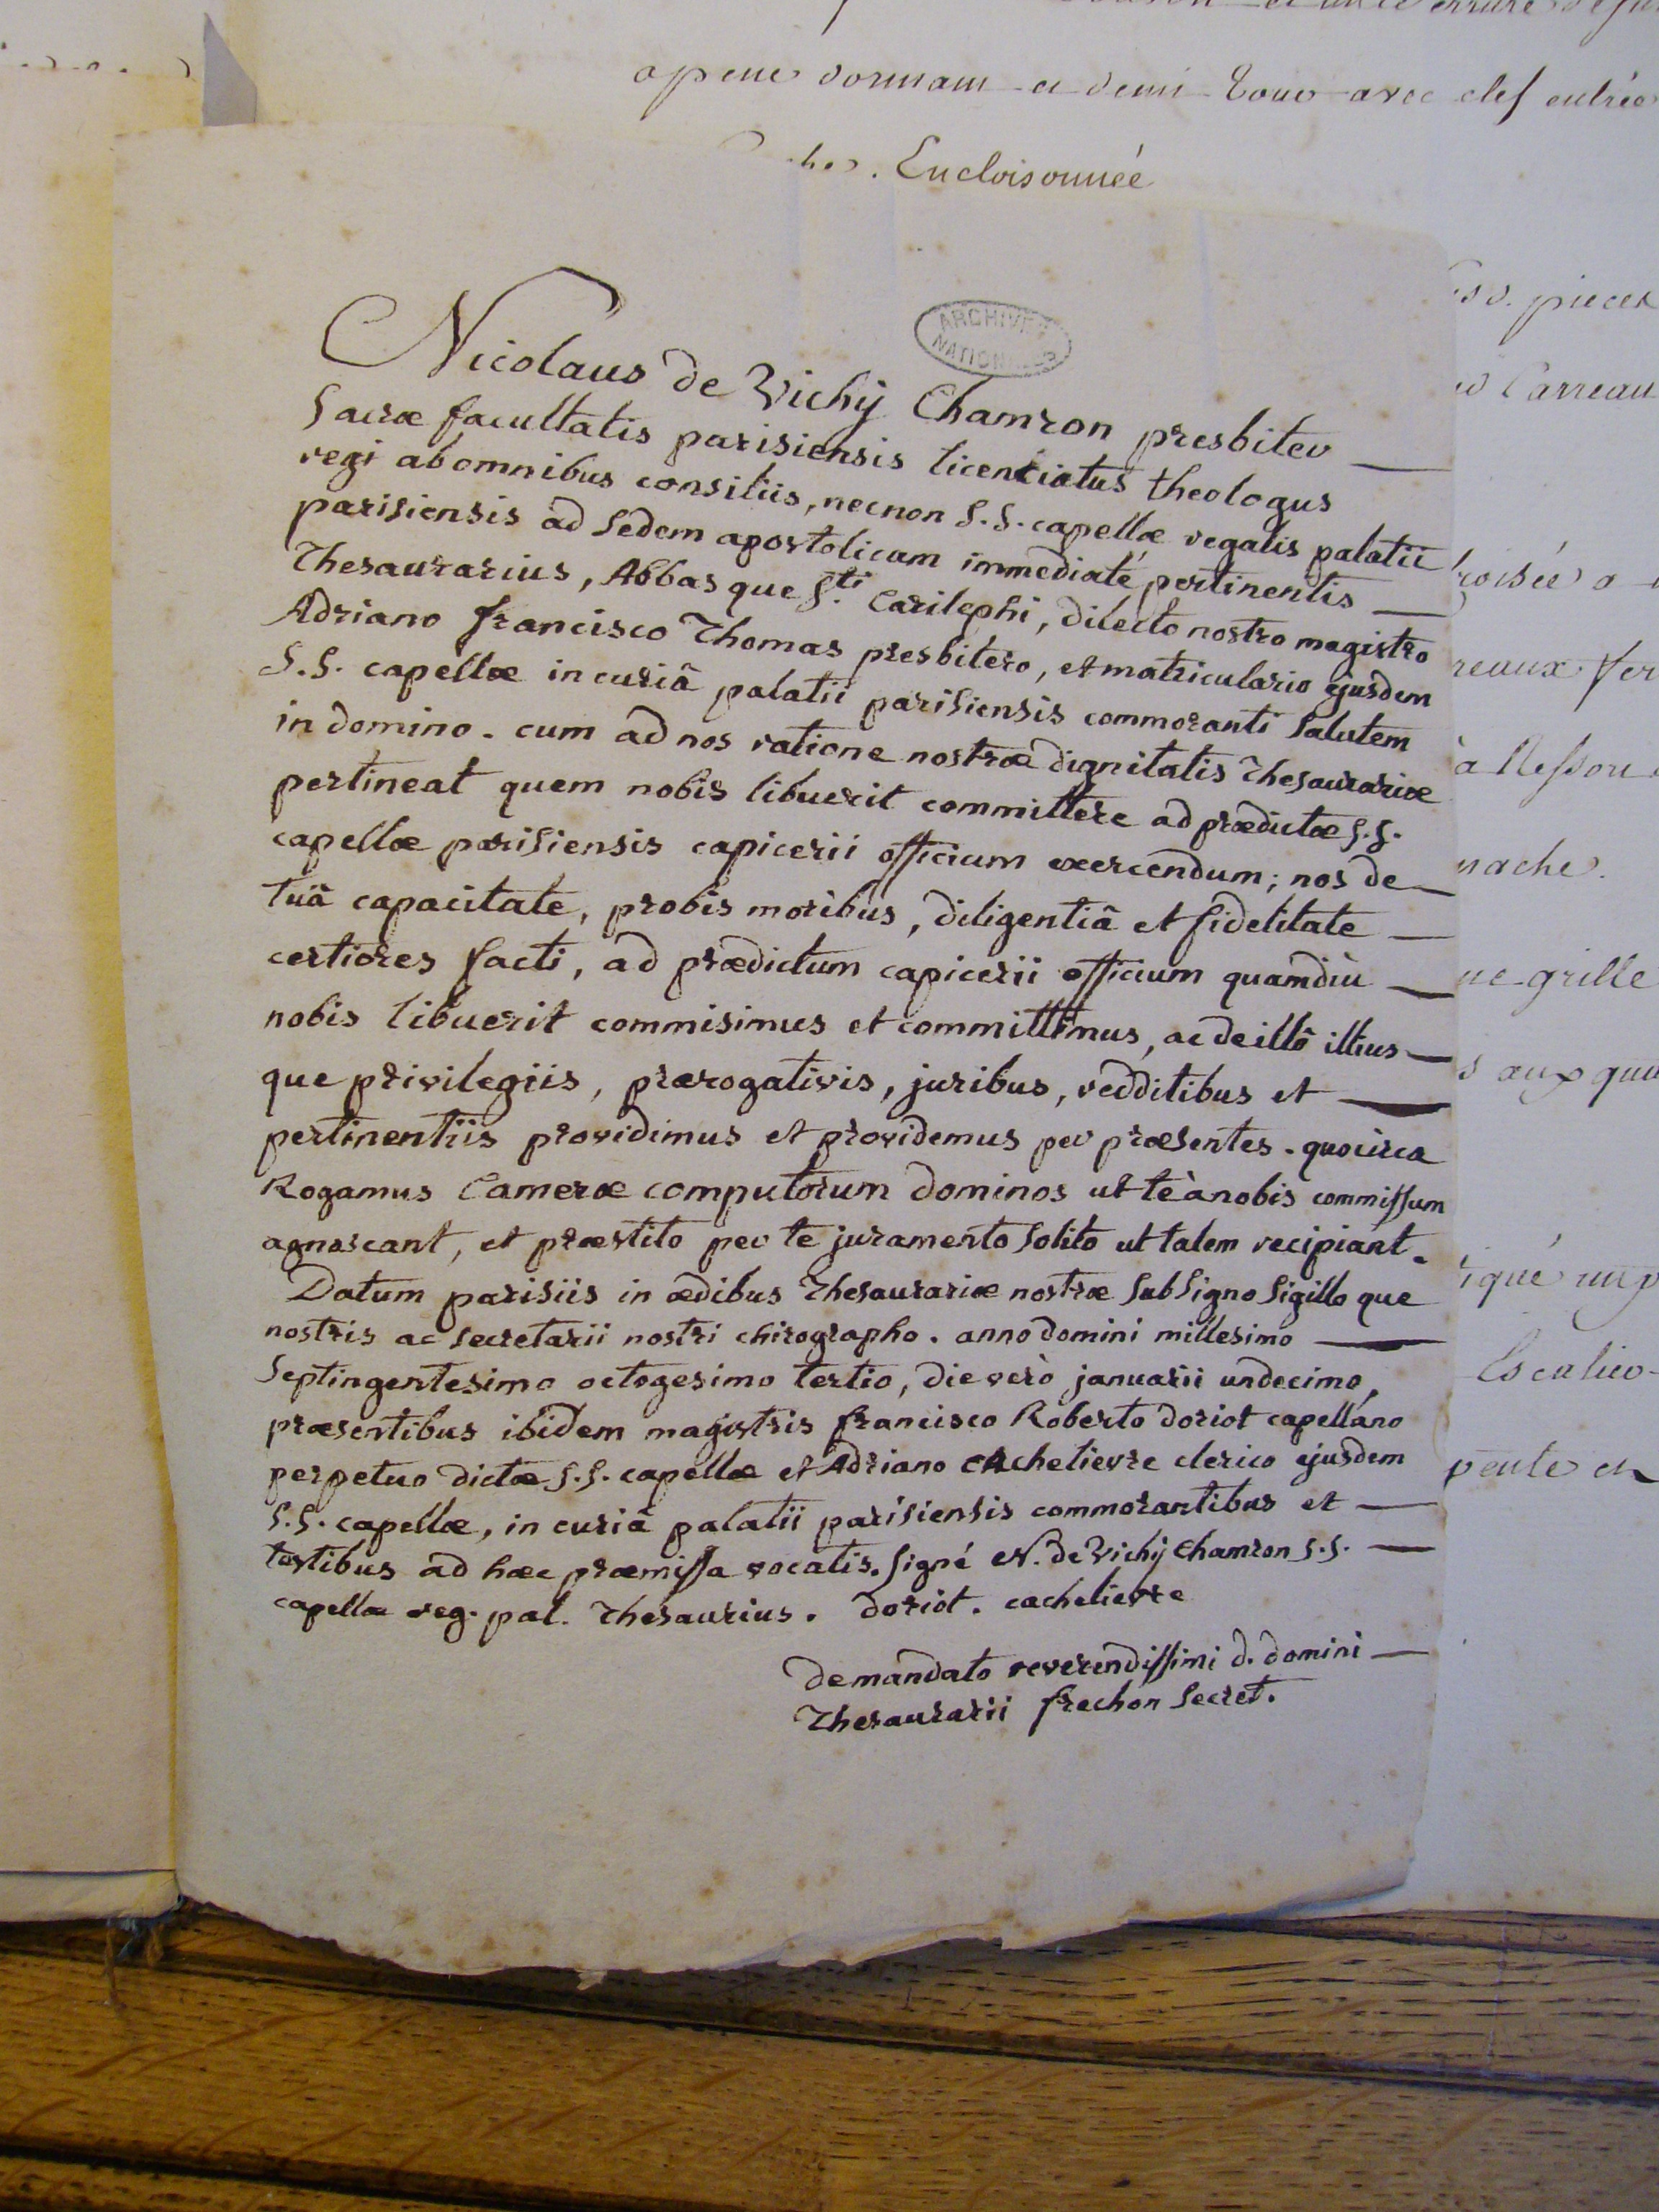 apene dormant et demi tour avec clef entrée
Encloisonnée
ARCHIVES
NATIONALES
Nicolaus de Vichÿ Chamron presbiter
Sacræ facultatis parisiensis licentiatus theologus
regi ab omnibus consiliis, necnon S.S. capellæ regalis palatii
parisiensis ad Sedem apostolicam immediaté pertinentis
Thesaurarius, Abbas que S.ti Carilephi, dilecto nostro magistro
Adriano francisco Thomas presbitero, et matriculario ejusdem
S.S. capellæ in curiâ palatii parisiensis commoranti Salutem
in domino. cum ad nos ratione nostræ dignitatis Thesaurariæ
pertineat quem nobis libuerit committere ad prædictæ S.S.
capellæ parisiensis capicerii officium exercendum; nos de
tuâ capacitate, probis moribus, diligentiâ et fidelitate
certiores facti, ad prædictum capicerii officium quamdiù
nobis libuerit commisimus et committimus, ac de illô illius
que privilegiis, prærogativis, juribus, redditibus et
pertinentiis providimus et providemus per præsentes. quocirca
Rogamus Cameræ computorum dominos ut te à nobis commissum
agnoscant, et præstito per te juramento solito ut talem recipiant.
Datum parisiis in ædibus Thesaurariæ nostræ Sub Signo Sigillo que
nostris ac Secretarii nostri chirographo. anno domini millesimo
Septingentesimo octogesimo tertio, die verò januarii undecimo,
præsentibus ibidem magistris francisco Roberto doriot capellano
perpetuo dictæ S.S. capellæ et Adriano Cachelievre clerico ejusdem
S.S. capellæ, in curiâ palatii parisiensis commorantibus et
testibus ad hæc præmissa vocatis. Signé N. de Vichÿ Chamron S.S.
capellæ reg. pal. Thesaurius. doriot. cachelievre
de mandato reverendissimi d. domini
Thesaurarii frechon Secret.
pieces
Carreau
croisée
reaux fer
à Ressou
nache.
ne grille
aux qua
iqué un p
Escalier
pente en